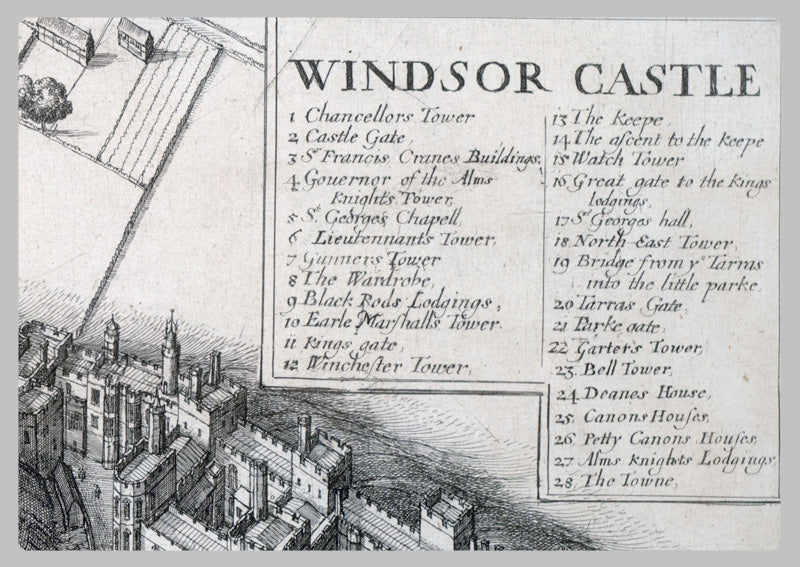 WINDSOR CASTLE
1 Chancellors Tower
2 Castle Gate,
3 Sr Francis Cranes Buildings,
4 Governor of the Alms
Knights Tower,
5 St Georges Chapell,
6 Lieutennants Tower,
7 Gunners Tower
8 The Wardrobe,
9 Black Rods Lodgings,
10 Earle Marshalls Tower
11 Kings gate,
12 Wincheſter Tower,
13 The Keepe,
14 The aſcent to the keepe
15 Watch Tower
16 Great gate to the Kings
lodgings,
17 St Georges hall,
18 North-East Tower,
19 Bridge from ye Tarras
into the little parke,
20 Tarras Gate,
21 Parke gate,
22 Garters Tower,
23 Bell Tower,
24 Deanes House,
25 Canons Houſes,
26 Petty Canons Houſes,
27 Alms Knights Lodgings,
28 The Towne,